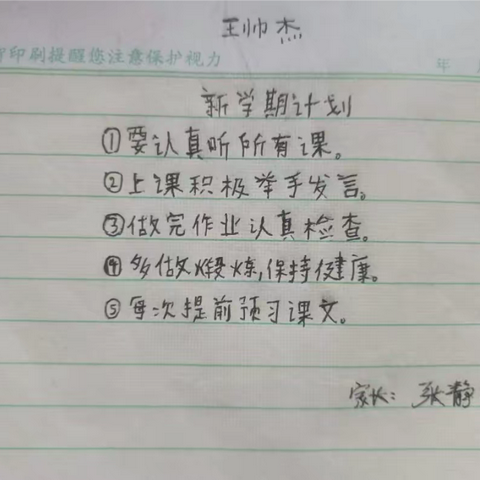 王帅杰
印刷提醒您注意保护视力
年
新学期计划
①要认真听所有课。
②上课积极举手发言。
③做完作业认真检查。
④多做煅炼,保持健康。
⑤每次提前预习课文。
家长：张静